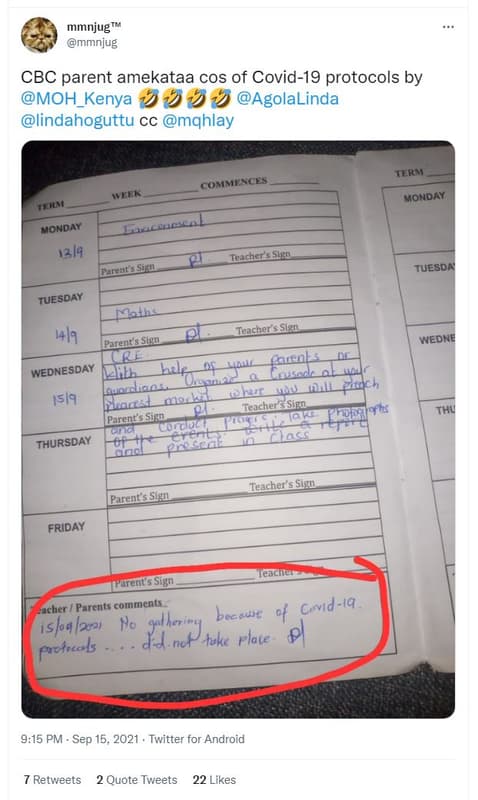 mmnjug™
@mmnjug
CBC parent amekataa cos of Covid-19 protocols by
@MOH_Kenya 🤣🤣🤣🤣 @AgolaLinda
@lindahoguttu cc @mqhlay
TERM WEEK COMMENCES
MONDAY
13/9
Environment
Parent's Sign Teacher's Sign
TUESDAY
14/9
Maths
Parent's Sign Teacher's Sign
WEDNESDAY
15/9
CRE
With help of your parents or
guardians. Organize a Crusade at your
nearest market where you will preach
Parent's Sign Teacher's Sign
and conduct prayers. Take photographs
of the event. write a report
and present in class
THURSDAY
Parent's Sign Teacher's Sign
FRIDAY
Parent's Sign Teacher's Sign
Teacher / Parents comments
15/09/2021 No gathering because of Covid-19.
protocols .... did not take place.
TERM
MONDAY
TUESDA
WEDNE
THU
9:15 PM · Sep 15, 2021 · Twitter for Android
7 Retweets 2 Quote Tweets 22 Likes